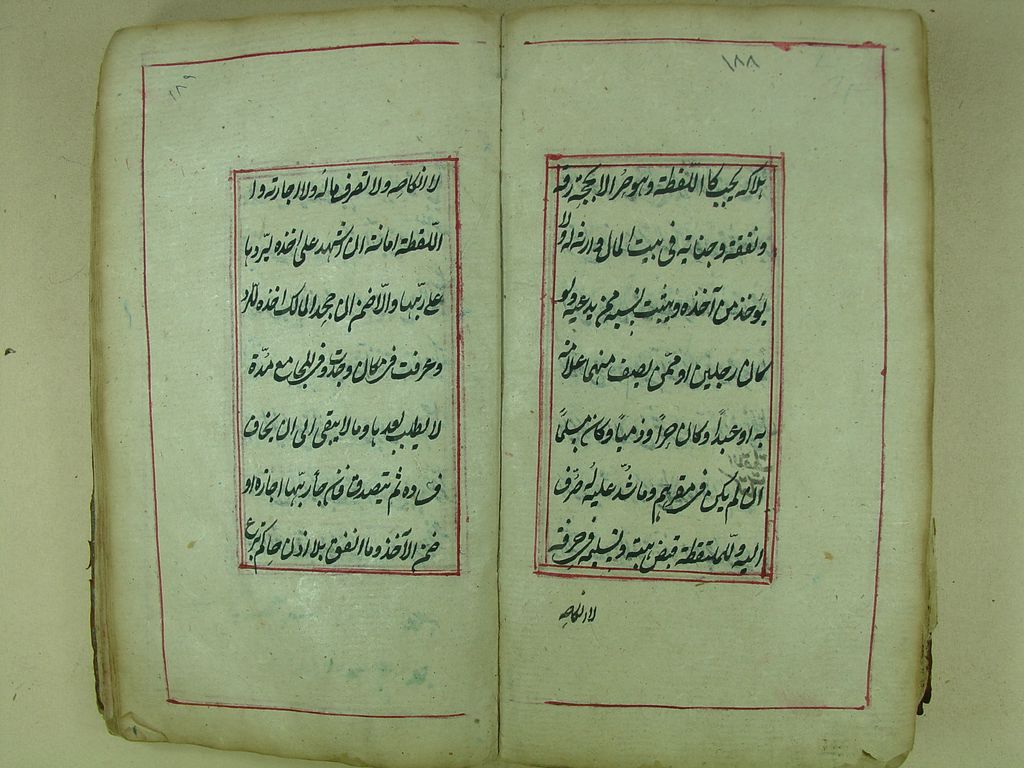 ١٨٨
هلاكه يجب كا اللقطة وهو حر الا بحجة رقه
ونفقته وجنايته فى بيت المال وارثه له ولا
يؤخذ من آخذه ويثبت نسبه ممن يدعيه ولو
كان رجلين او ممن يصف منهما علامة
به او عبداً وكان حراً وذمياً وكان مسلماً
ان لم يكن فى مقرهم وما شد عليه صرف
اليه وللملتقطة قبض هبته وتسليمه فى حرفة
لا انكاحه
١٨٩
لا انكاحه ولا تصرف ماله ولا اجارته و ا
اللقطة امانة ان اشهد على اخذه ليردها
على ربها والا ضمن ان جحد المالك اخذه للرد
وعرفت فى مكان وجدت وفى المجامع مدة
لا يطلب بعدها وما لا يبقى الى ان يخاف
فساده ثم يتصدق فان جاء ربها اجازه او
ضمن الآخذ وما انفق بلا اذن حاكم تبرع